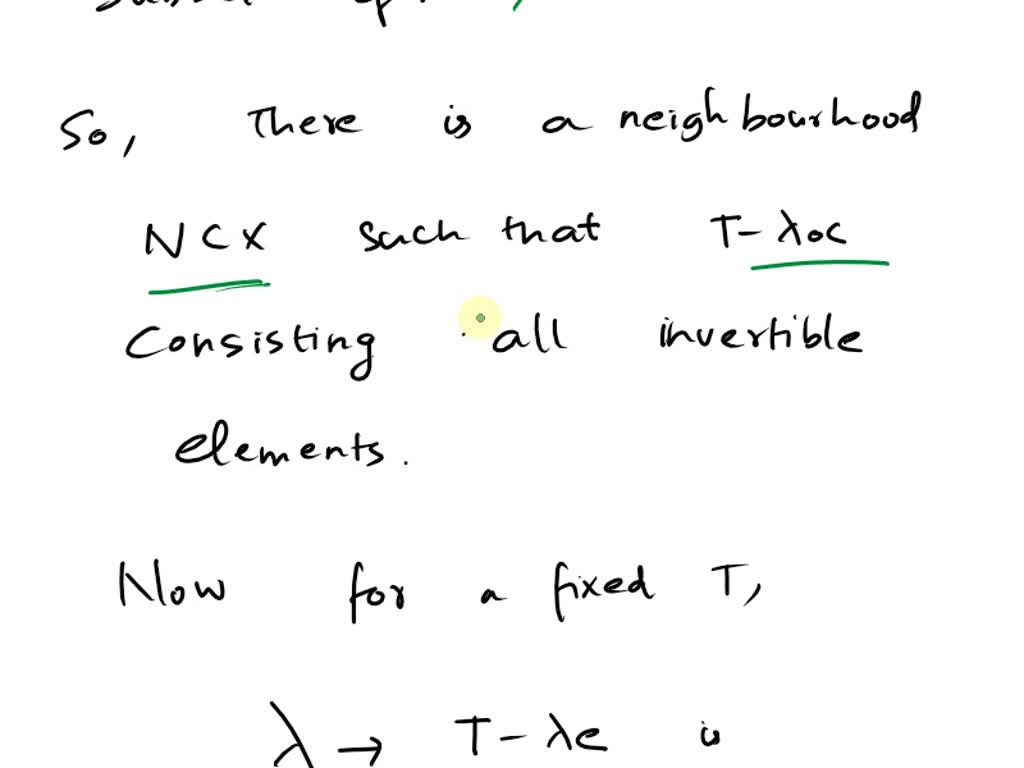 So, There is a neighbourhood
N C X such that T - λoc
Consisting all invertible
elements.
Now for a fixed T,
λ → T - λe is